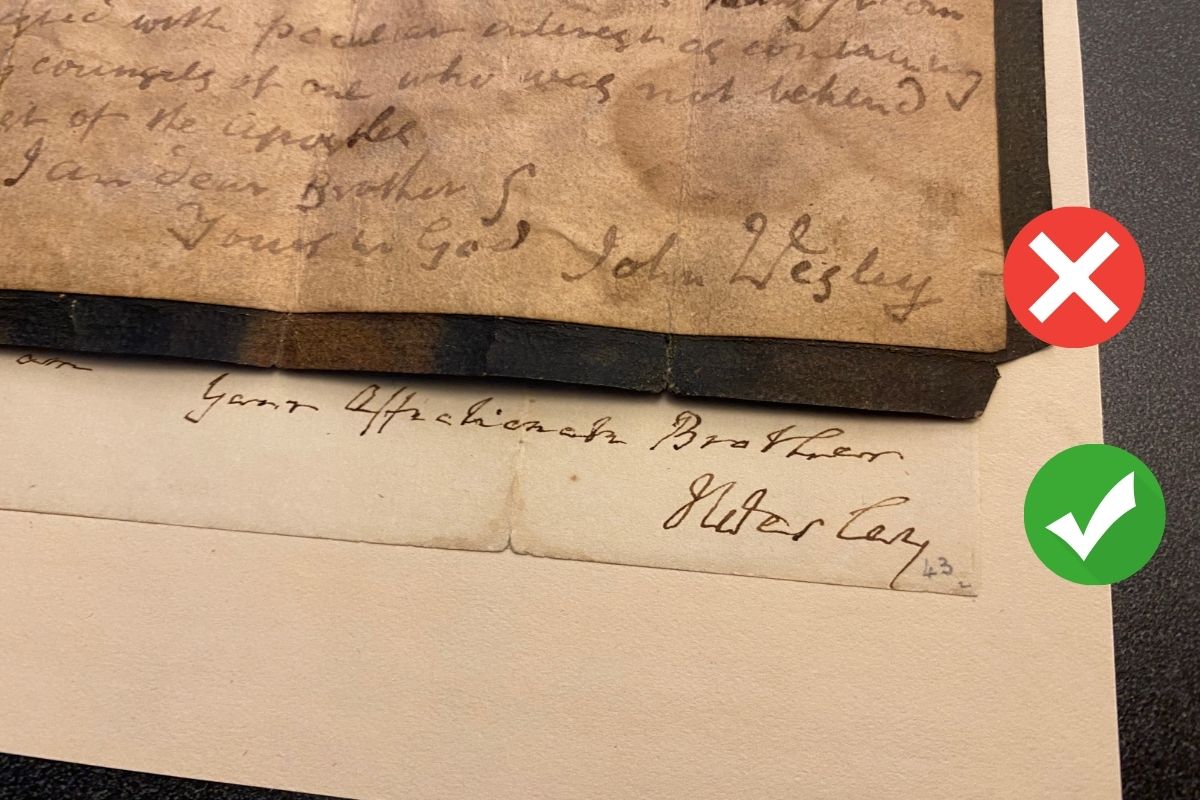 with peculiar interest as containing
counsels of one who was not behind
of the apostles
I am dear Brother
Yours in God John Wesley
am
Your Affectionate Brother
J Wesley
43